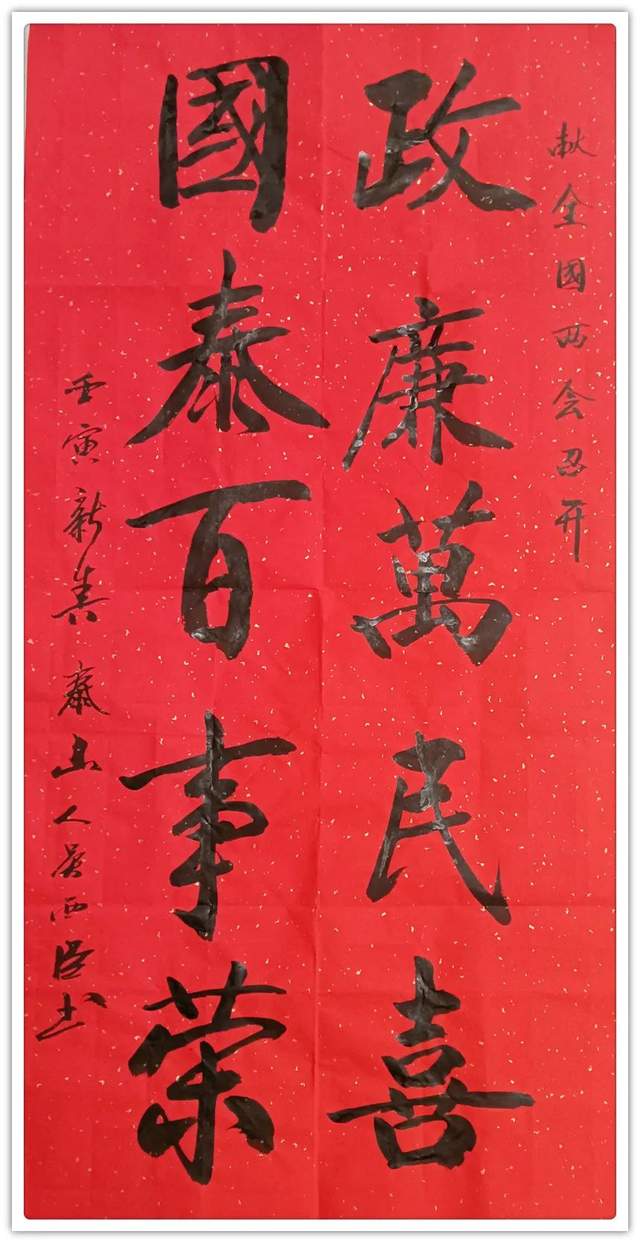 献全國两会召开
政廉萬民喜
國泰百事荣
壬寅新春 嬴山人吴西臣书